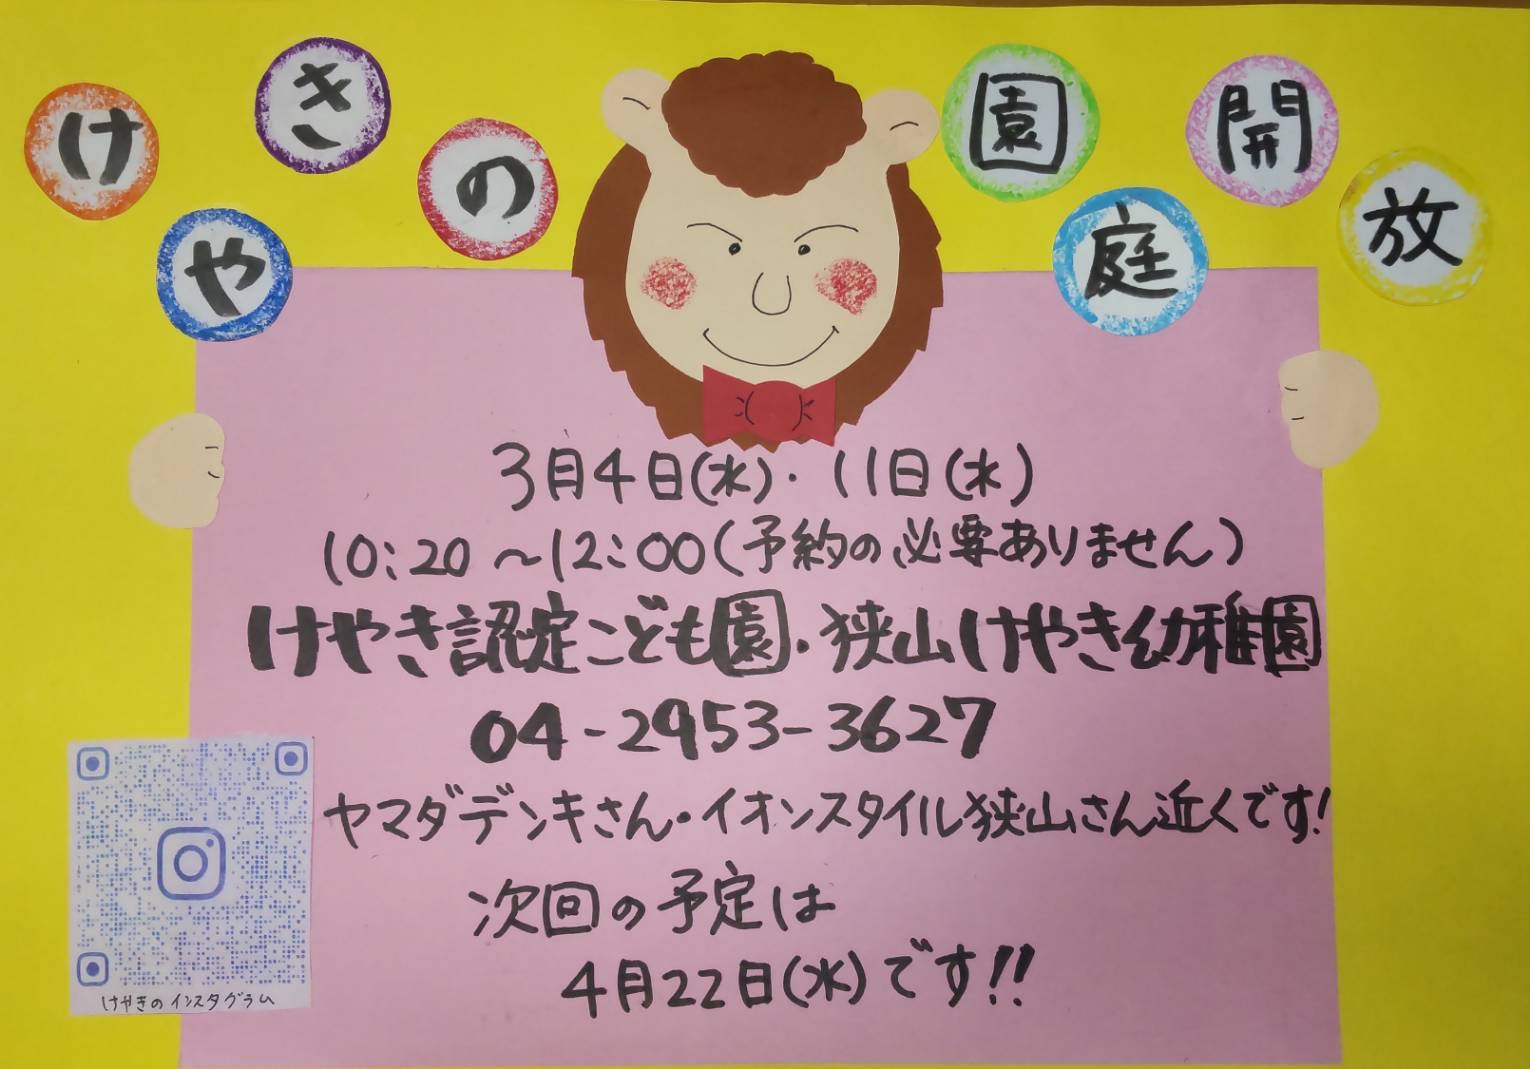 けやきの園庭開放
3月4日(水)・11日(水)
10:20～12:00(予約の必要ありません)
けやき認定こども園・狭山けやき幼稚園
04-2953-3627
ヤマダデンキさん・イオンスタイル狭山さん近くです!
次回の予定は
4月22日(水)です!!
けやきのインスタグラム